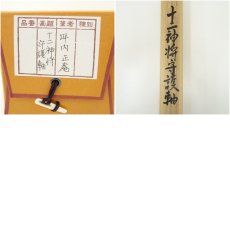 品番 画題 筆者 種別
坪内正庵
十二神将
守護軸
十二神将守護軸